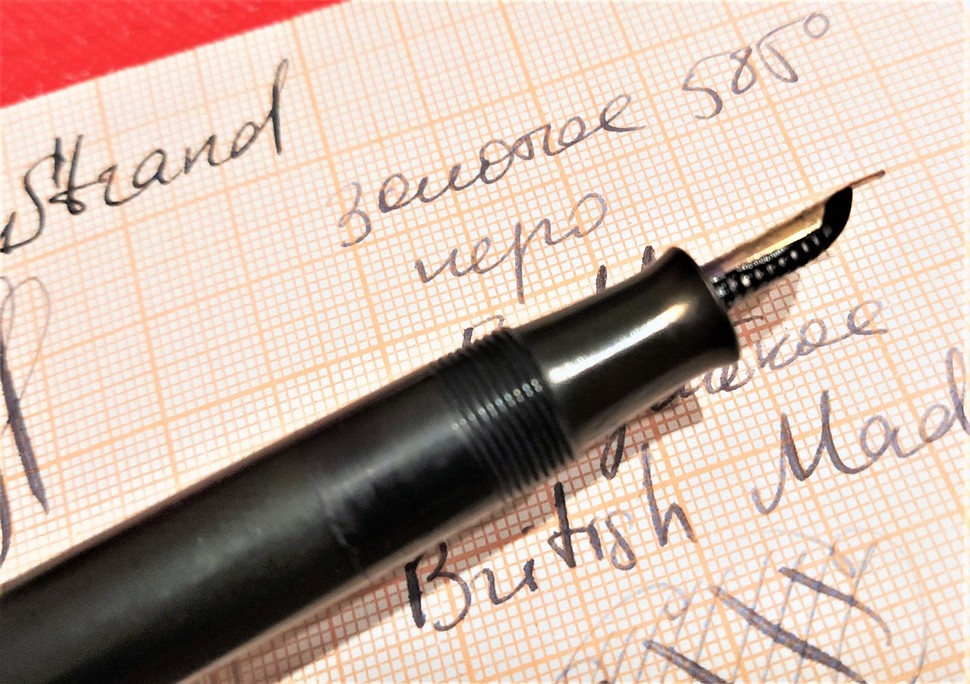 Strand
золотое 585°
перо
British Mad